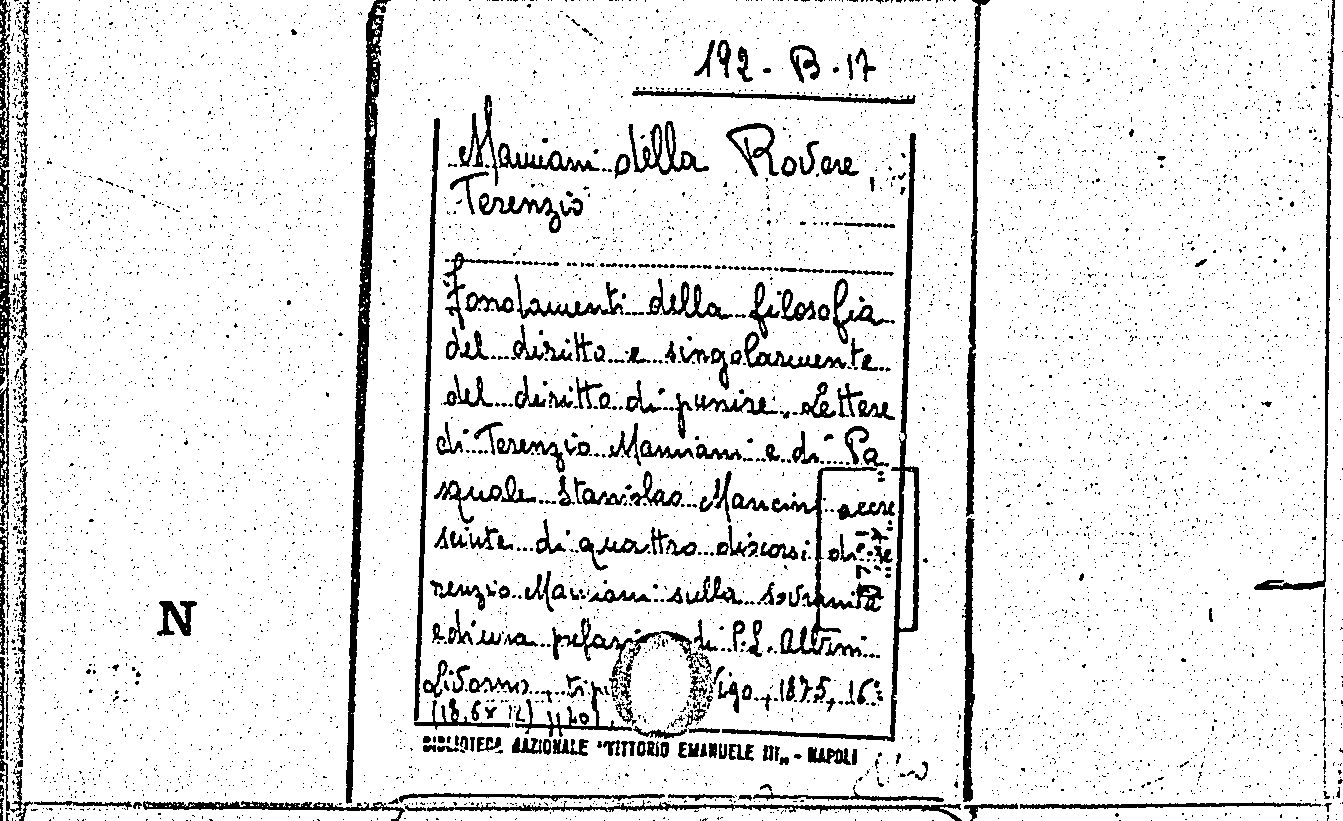 192 - B - 17
Mamiani della Rovere,
Terenzio
Fondamenti della filosofia
del diritto e singolarmente
del diritto di punire. Lettere
di Terenzio Mamiani e di Pa
squale Stanislao Mancini accre
sciute di quattro discorsi di Te
renzio Mamiani sulla sovranità
e di una prefazi di P. L. Albini
Livorno, tip. Vigo, 1875, 16°
(18,6x12)
BIBLIOTECA NAZIONALE "VITTORIO EMANUELE III„ - NAPOLI
N